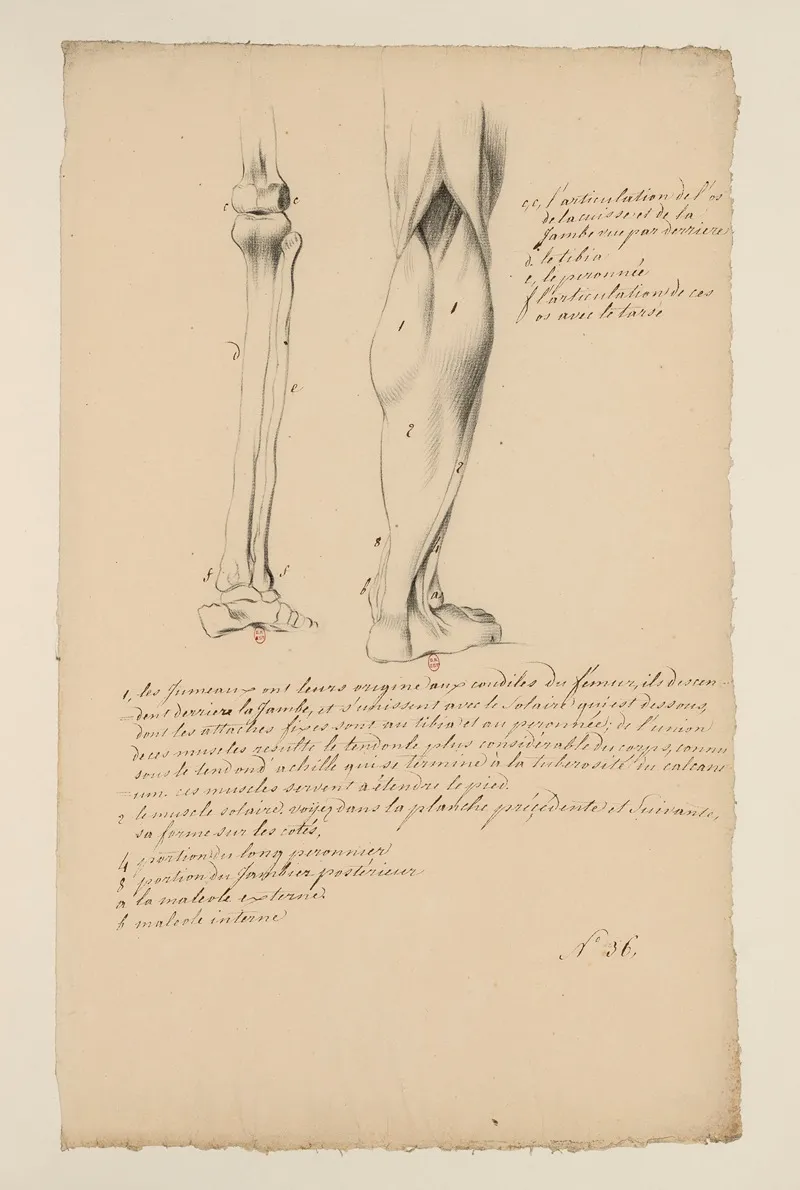 c,c, l'articulation de l'os
de la cuisse et de la
Jambe vue par derriere
d. le tibia
e, le peronnée
f l'articulation de ces
os avec le tarse
c
c
d
e
f
f
1
1
2
2
8
4
b
a
1, les Jumeaux ont leurs origine aux condiles du fémur, ils descen-
=dent derriere la Jambe, et s'unissent avec le Solaire qui est dessous,
dont les attaches fixes sont au tibia et au peronnée; de l'union
de ces muscles resulte le tendon le plus considérable du corps, connu
sous le tendon d'achille qui se termine à la tuberosité du calcane
=um. ces muscles servent a étendre le pied.
2 le muscle solaire. voyez dans la planche précédente et Suivante,
sa forme sur les cotés,
4 portion du long peronnier
8 portion du Jambier postérieur
a la maleole externe.
b maleole interne
N° 36,